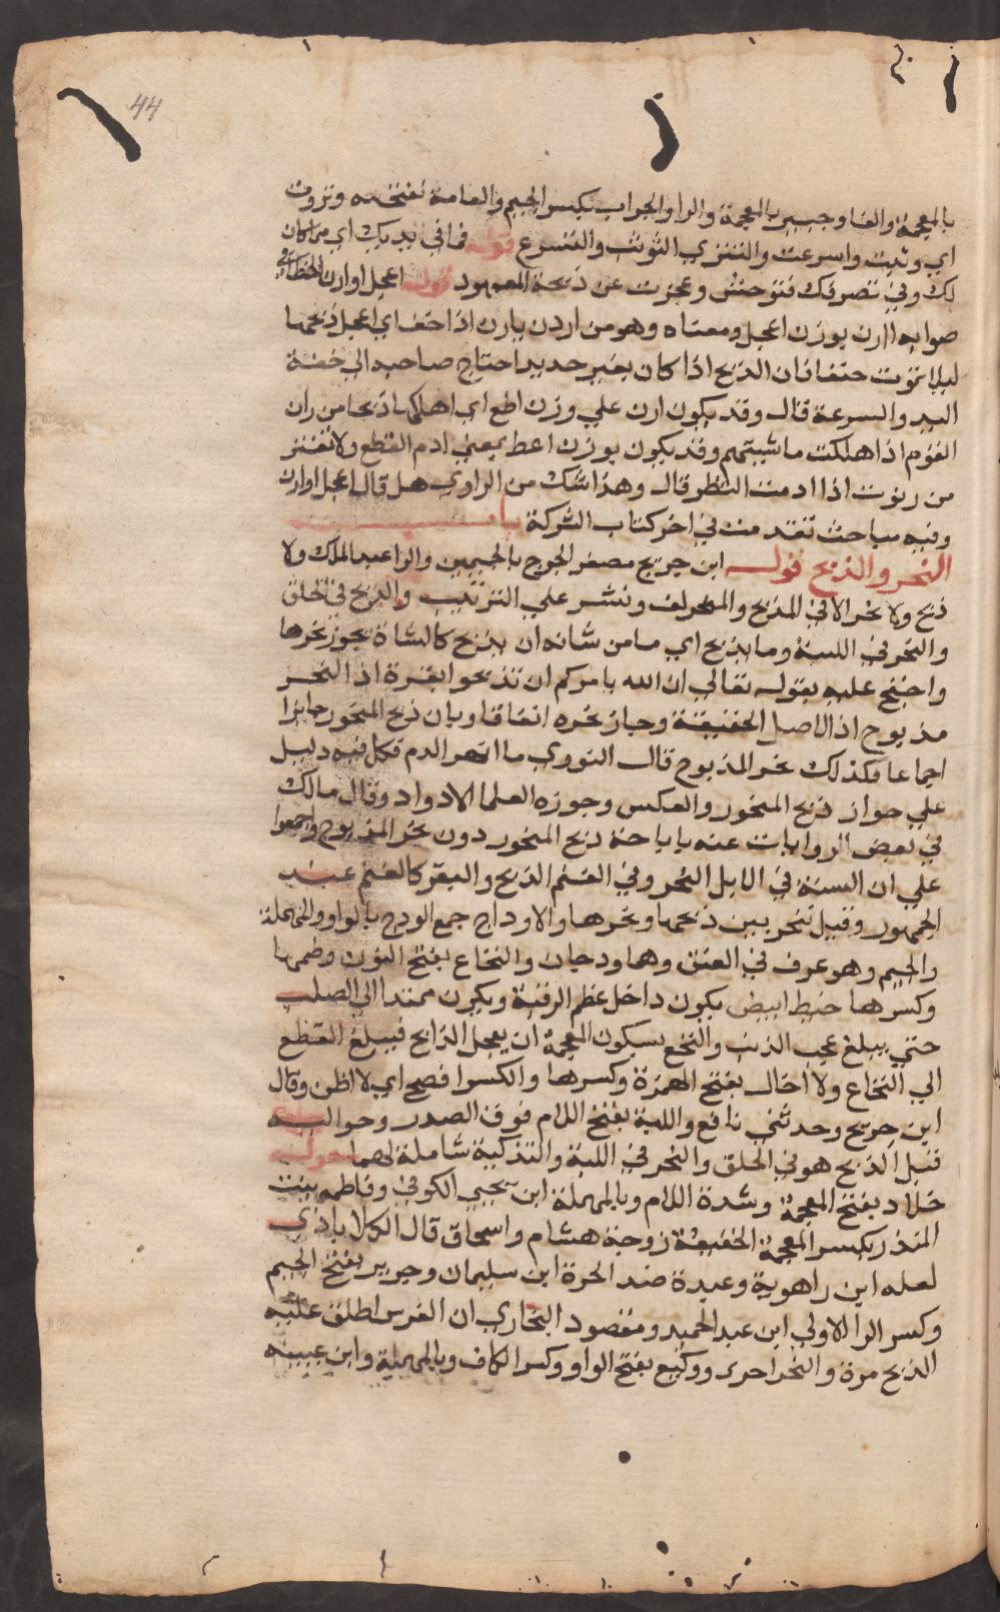 44
بالمعجمة والفا وجبير بالمعجمة والرا والجراب بكسر الجيم والعامة تفتحه ونزوت
اي وثبت واسرعت والتنزي التوثب والتسرع قوله فما في يديك اي مما كان
لك وفي تصرفك فتوحش وعجزت عن ذبحه المعهود قوله اعجل او ارن الخطابي
صوابه اارن بوزن اعجل ومعناه وهو من اردن يارن اذا خف اي اعجل ذبحها
ليلا تموت حتفا فان الذبح اذا كان بغير حديد احتاج صاحبه الي خفة
اليد والسرعة قال وقد يكون ارن علي وزن اطع اي اهلكها ذبحا من ران
القوم اذا هلكت ماشيتهم وقد يكون بوزن اعط بمعني ادم القطع ولا تفتر
من رنوت اذا ادمت النظر قال وهذا شك من الراوي هل قال اعجل او ارن
وفيه مباحث تقدمت في اخر كتاب الشركة باب
النحر والذبح قوله ابن جريج مصغر الجرج بالجيمين والرا عبد الملك ولا
ذبح ولا نحر الا في المذبح والمنحر لف ونشر علي الترتيب والذبح في الحلق
والنحر في اللبة وما يذبح اي ما من شانه ان يذبح كالشاة يجوز نحرها
واحتج عليه بقوله تعالي ان الله يامركم ان تذبحوا بقرة اذ النحر
مذبوح اذ الاصل الحقيقة وجاز نحره اتفاقا وبان ذبح المنحور جايزا
اجماعا فكذلك نحر المذبوح قال النووي ما انهر الدم فكل فيه دليل
علي جواز ذبح المنحور والعكس وجوزه العلما الا داود وقال مالك
في بعض الروايات عنه باباحة ذبح المنحور دون نحر المذبوح واجمعوا
علي ان السنة في الابل النحر وفي الغنم الذبح والبقر كالغنم عند
الجمهور وقيل تخير بين ذبحها ونحرها والاوداج جمع الودج بالواو والمهملة
والجيم وهو عرف في العنق وهما ودجان والنخاع بفتح النون وضمها
وكسرها خيط ابيض يكون داخل عظم الرقبة ويكون ممتدا الي الصلب
حتي يبلغ عجب الذنب والنخع بسكون المعجمة ان يعجل الذابح فيبلغ القطع
الي النخاع ولا اخال بفتح الهمزة وكسرها والكسر افصح اي لا اظن وقال
ابن جريج وحدثني نافع واللبة بفتح اللام فوق الصدر وحواليه
قبل الذبح هو في الحلق والنحر في اللبة والتذكية شاملة لهما قوله
خلاد بفتح المعجمة وشدة اللام وبالمهملة ابن يحيي الكوفي وفاطمه بنت
المنذر بكسر المعجمة الخفيفة زوجة هشام واسحاق قال الكلاباذي
لعله ابن راهوية وعبدة ضد الحرة ابن سليمان وجرير بفتح الجيم
وكسر الرا الاولي ابن عبد الحميد ومقصود البخاري ان الفرس اطلق عليه
الذبح مرة والنحر اخري ووكيع بفتح الواو وكسر الكاف وبالمهملة وابن عيينه